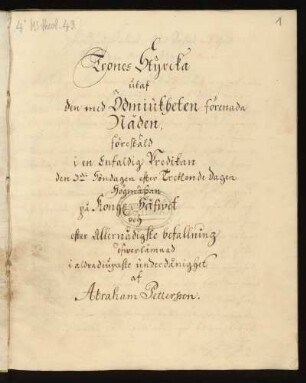 4° Hist. 43
1
Trones Styrcka
utaf
den med Ödmiukheten förenada
Nåden,
förestäld
i en Enfaldig Predikan
den 3die Söndagen efter Trettonde dagen
Högmässan
på Kongs Gåfwel
och
efter Allernådigste befallning
öfwerlämnad
i aldradiupaste underdånighet
af
Abraham Pettersson.